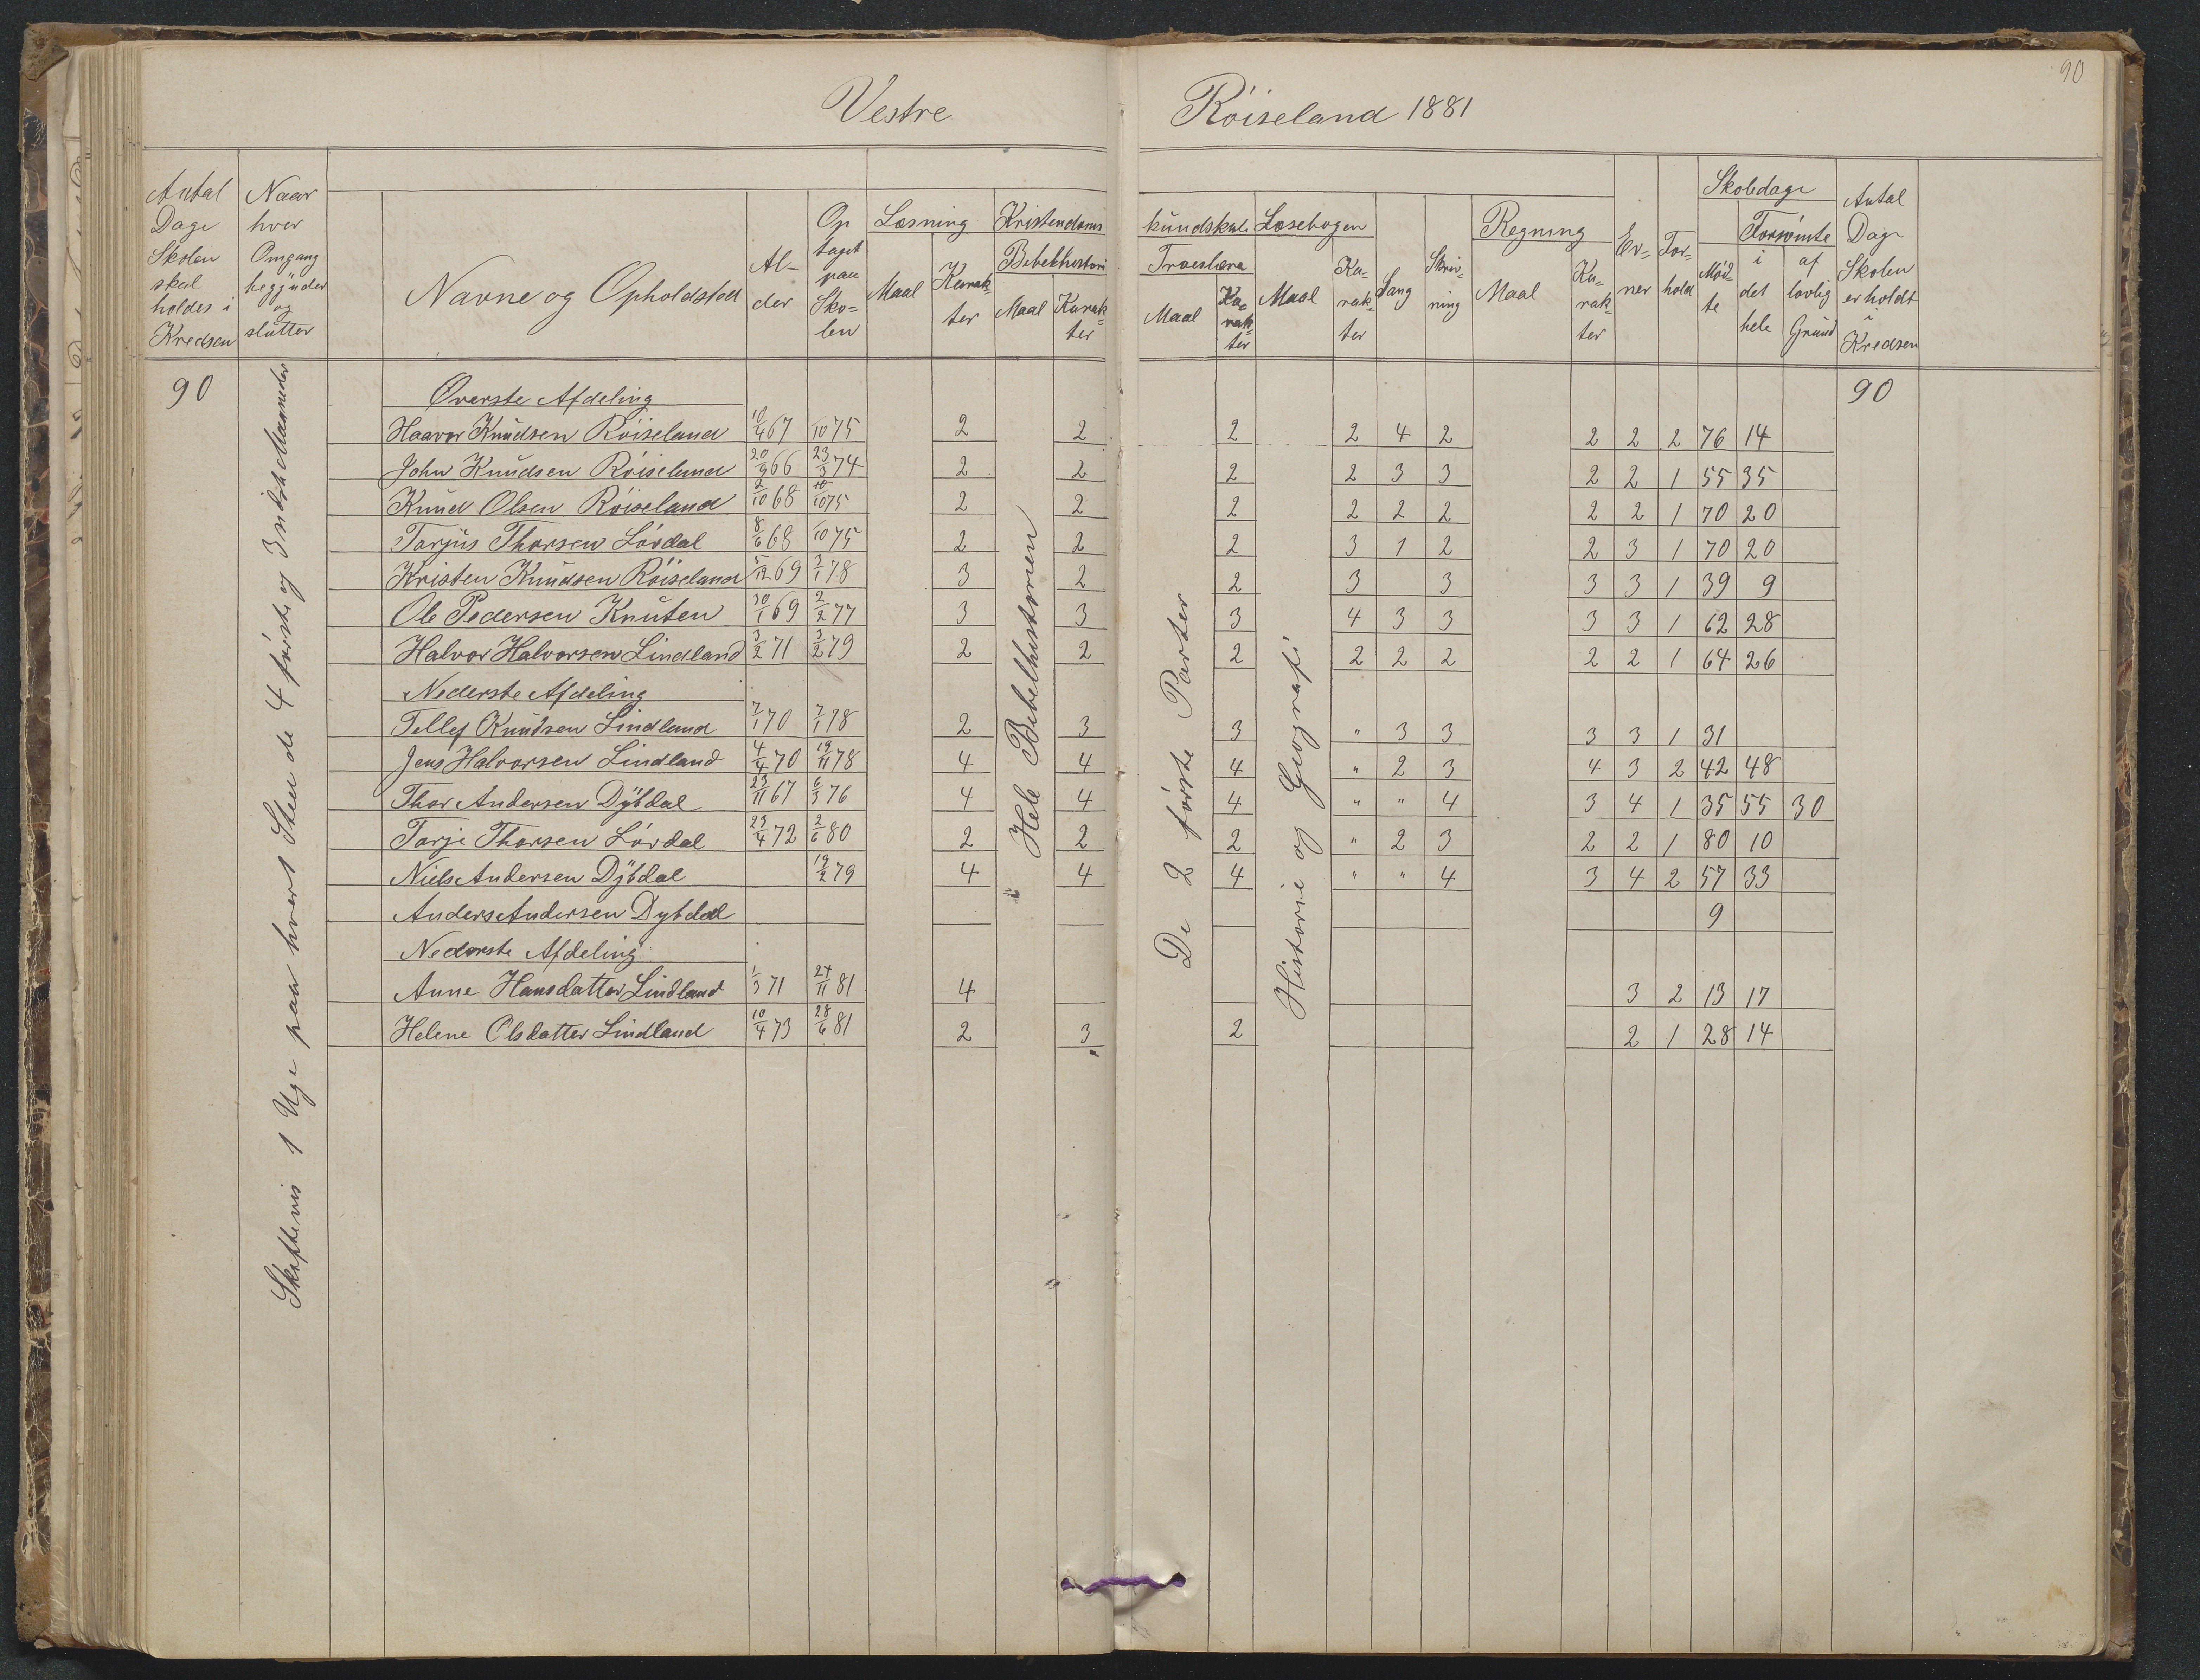 90
Vestre Röiseland 1881
Antal Dage Skolen skal holdes i Kredsen
Naar hver Omgang begynder og slutter
Navne og Opholdsted
Alder
Optaget paa Skolen
Læsning
Maal
Karakter
Kristendomskundskab
Bibelhistorie
Maal
Karakter
Troeslære
Maal
Karakter
Læsebogen
Maal
Karakter
Sang
Skrivning
Regning
Maal
Karakter
Evner
Forhold
Skoledage
Mödte
Forsömte
i det hele
af lovlig Grund
Antal Dage Skolen er holdt i Kredsen
90
90
Skiftevis 1 Uge paa hvert Sted de 4 förste og 3 sidste Maaneder
Hele Bibelhistorien
De 2 förste Parter
Historie og Geografi
Øverste Afdeling
Haavor Knudsen Röiseland 10/4 67 10 75 2 2 2 2 4 2 2 2 2 76 14
John Knudsen Röiseland 20/9 66 23/3 74 2 2 2 2 3 3 2 2 1 55 35
Knud Olsen Röiseland 2/10 68 10/10 75 2 2 2 2 2 2 2 2 1 70 20
Tarjus Thorsen Lövdal 8/6 68 10 75 2 2 2 3 1 2 2 3 1 70 20
Kristen Knudsen Röiseland 5/12 69 2/1 78 3 2 2 3 3 3 3 1 39 9
Ole Pedersen Knuten 30/1 69 2/2 77 3 3 3 4 3 3 3 3 1 62 28
Halvor Halvorsen Lindland 3/2 71 3/2 79 2 2 2 2 2 2 2 2 1 64 26
Nederste Afdeling
Tellef Knudsen Lindland 7/1 70 7/1 78 2 3 3 " 3 3 3 3 1 31
Jens Halvorsen Lindland 4/4 70 19/11 78 4 4 4 " 2 3 4 3 2 42 48
Thor Andersen Dÿbdal 23/11 67 6/3 76 4 4 4 " " 4 3 4 1 35 55 30
Tarje Thorsen Lövdal 23/4 72 2/6 80 2 2 2 " 2 3 2 2 1 80 10
Niels Andersen Dÿbdal 19/2 79 4 4 4 " " 4 3 4 2 57 33
Anders Andersen Dybdal 9
Nederste Afdeling
Anne Hansdatter Lindland 1/3 71 24/11 81 4 3 2 13 17
Helene Olsdatter Lindland 10/4 73 28/6 81 2 3 2 2 1 28 14